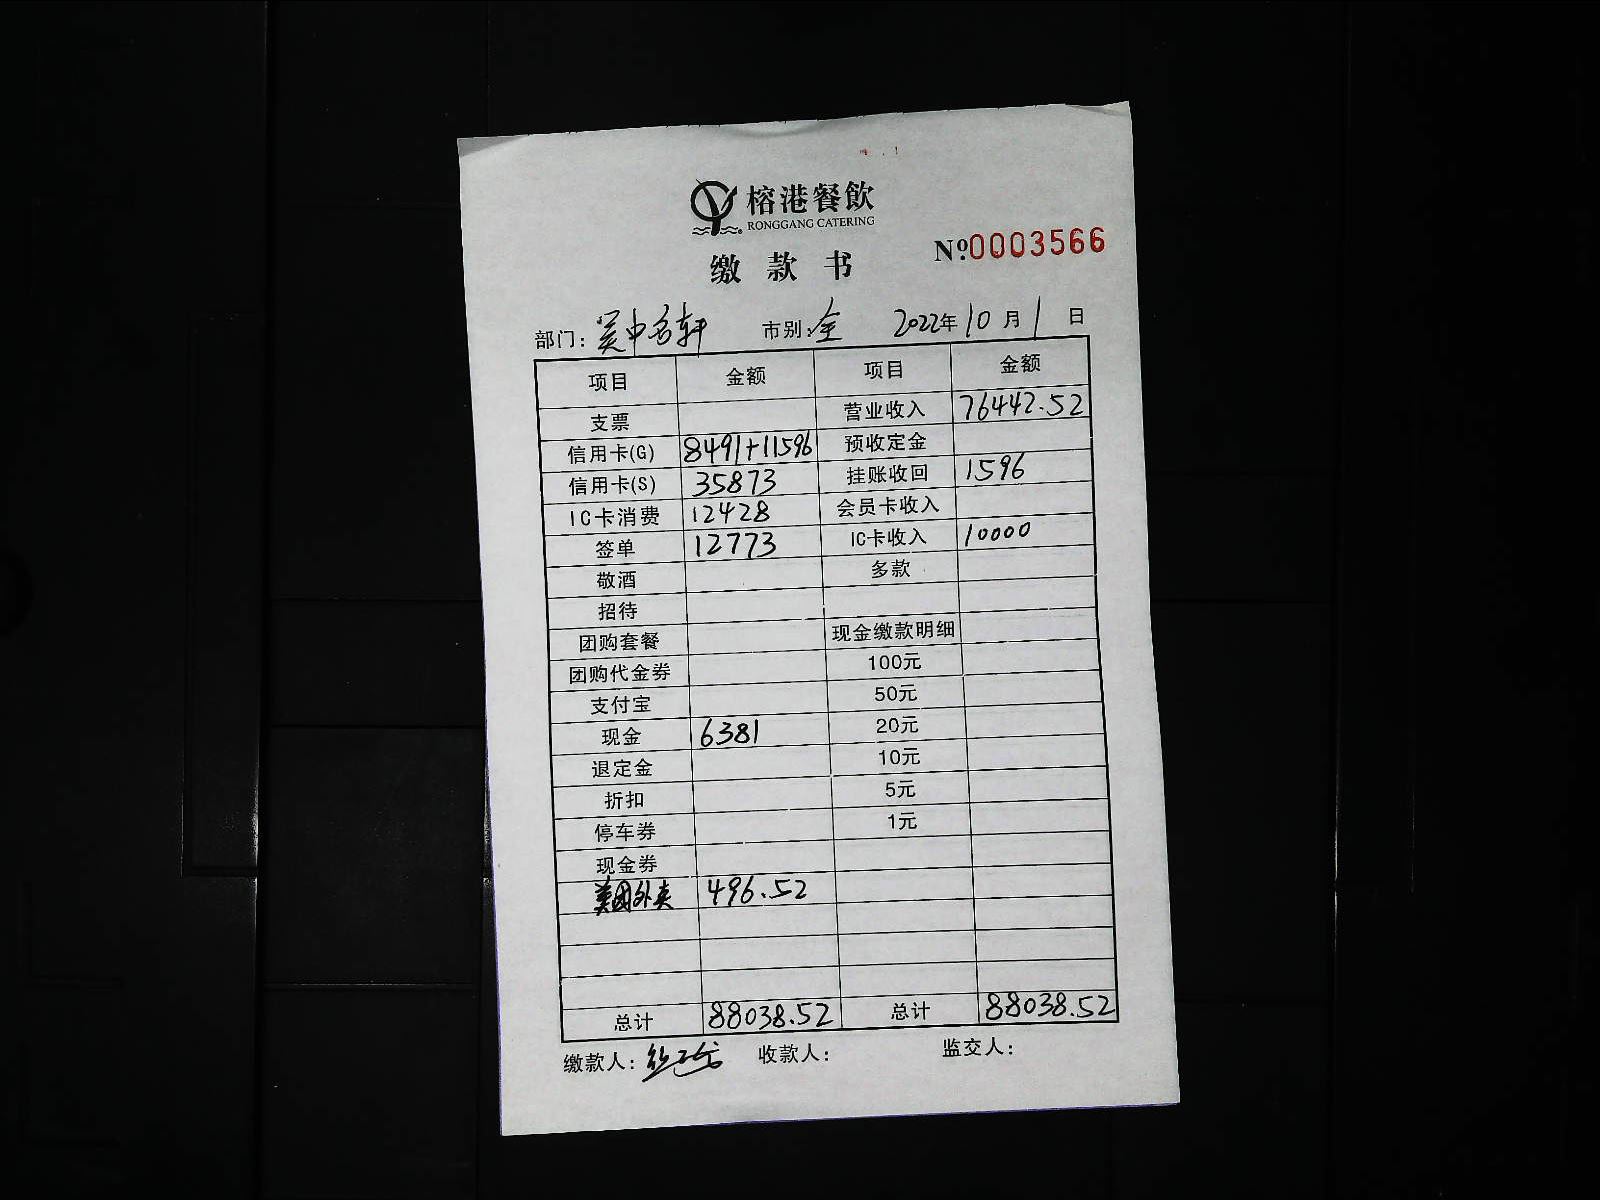 榕港餐飲
RONGGANG CATERING
缴款书 №0003566
部门: 吴中名轩 市别: 全 2022年10月1日
项目 金额 项目 金额
支票 营业收入 76442.52
信用卡(G) 8491+11596 预收定金
信用卡(S) 35873 挂账收回 1596
IC卡消费 12428 会员卡收入
签单 12773 IC卡收入 10000
敬酒 多款
招待
团购套餐 现金缴款明细
团购代金券 100元
支付宝 50元
现金 6381 20元
退定金 10元
折扣 5元
停车券 1元
现金券
美团外卖 496.52
总计 88038.52 总计 88038.52
缴款人: 收款人: 监交人: